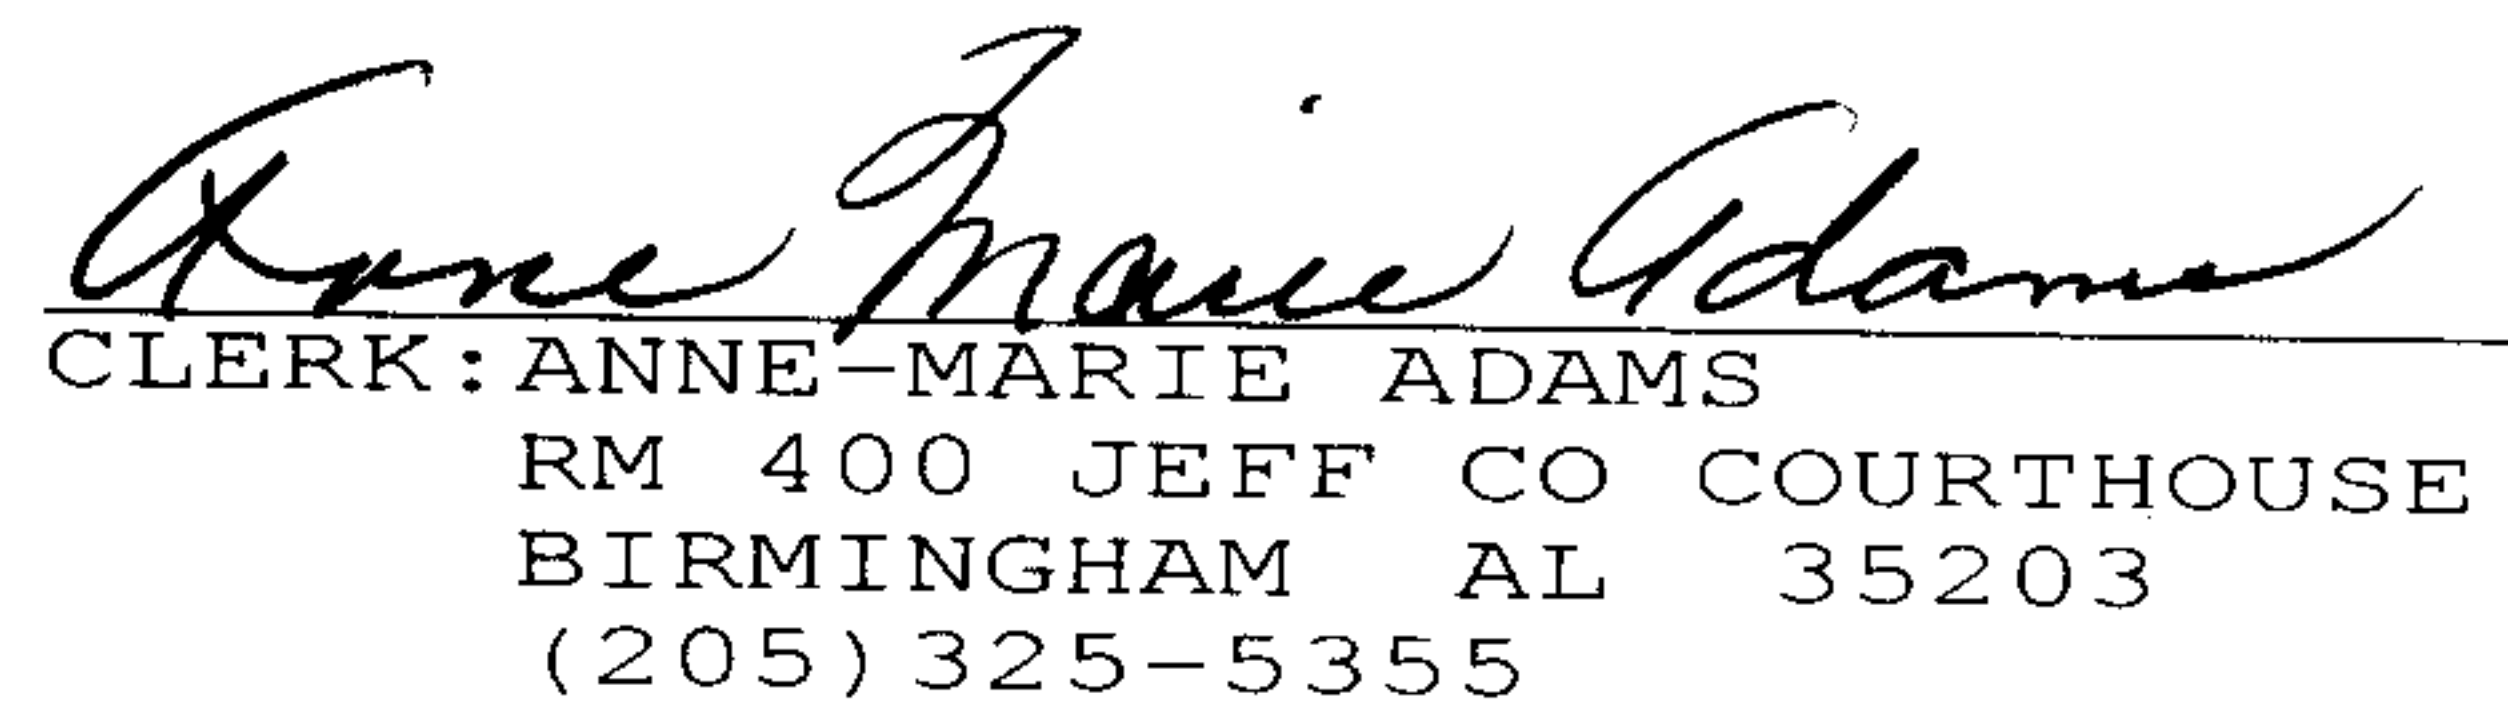 Anne-Marie Adams
CLERK:ANNE-MARIE ADAMS
RM 400 JEFF CO COURTHOUSE
BIRMINGHAM AL 35203
(205)325-5355